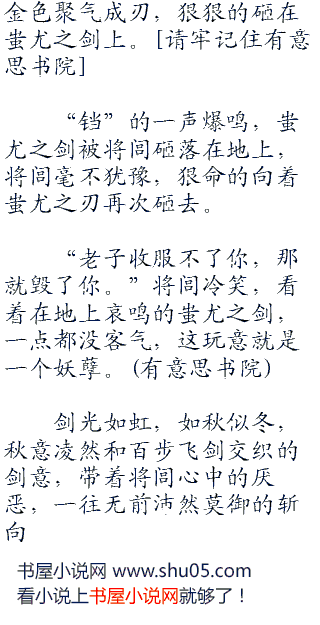 金色聚气成刃，狠狠的砸在
蚩尤之剑上。[请牢记住有意
思书院]
“铛”的一声爆鸣，蚩
尤之剑被将闾砸落在地上，
将闾毫不犹豫，狠命的向着
蚩尤之刃再次砸去。
“老子收服不了你，那
就毁了你。”将闾冷笑，看
着在地上哀鸣的蚩尤之剑，
一点都没客气，这玩意就是
一个妖孽。(有意思书院)
剑光如虹，如秋似冬，
秋意凌然和百步飞剑交织的
剑意，带着将闾心中的厌
恶，一往无前沛然莫御的斩
向
书屋小说网 www.shu05.com
看小说上书屋小说网就够了！